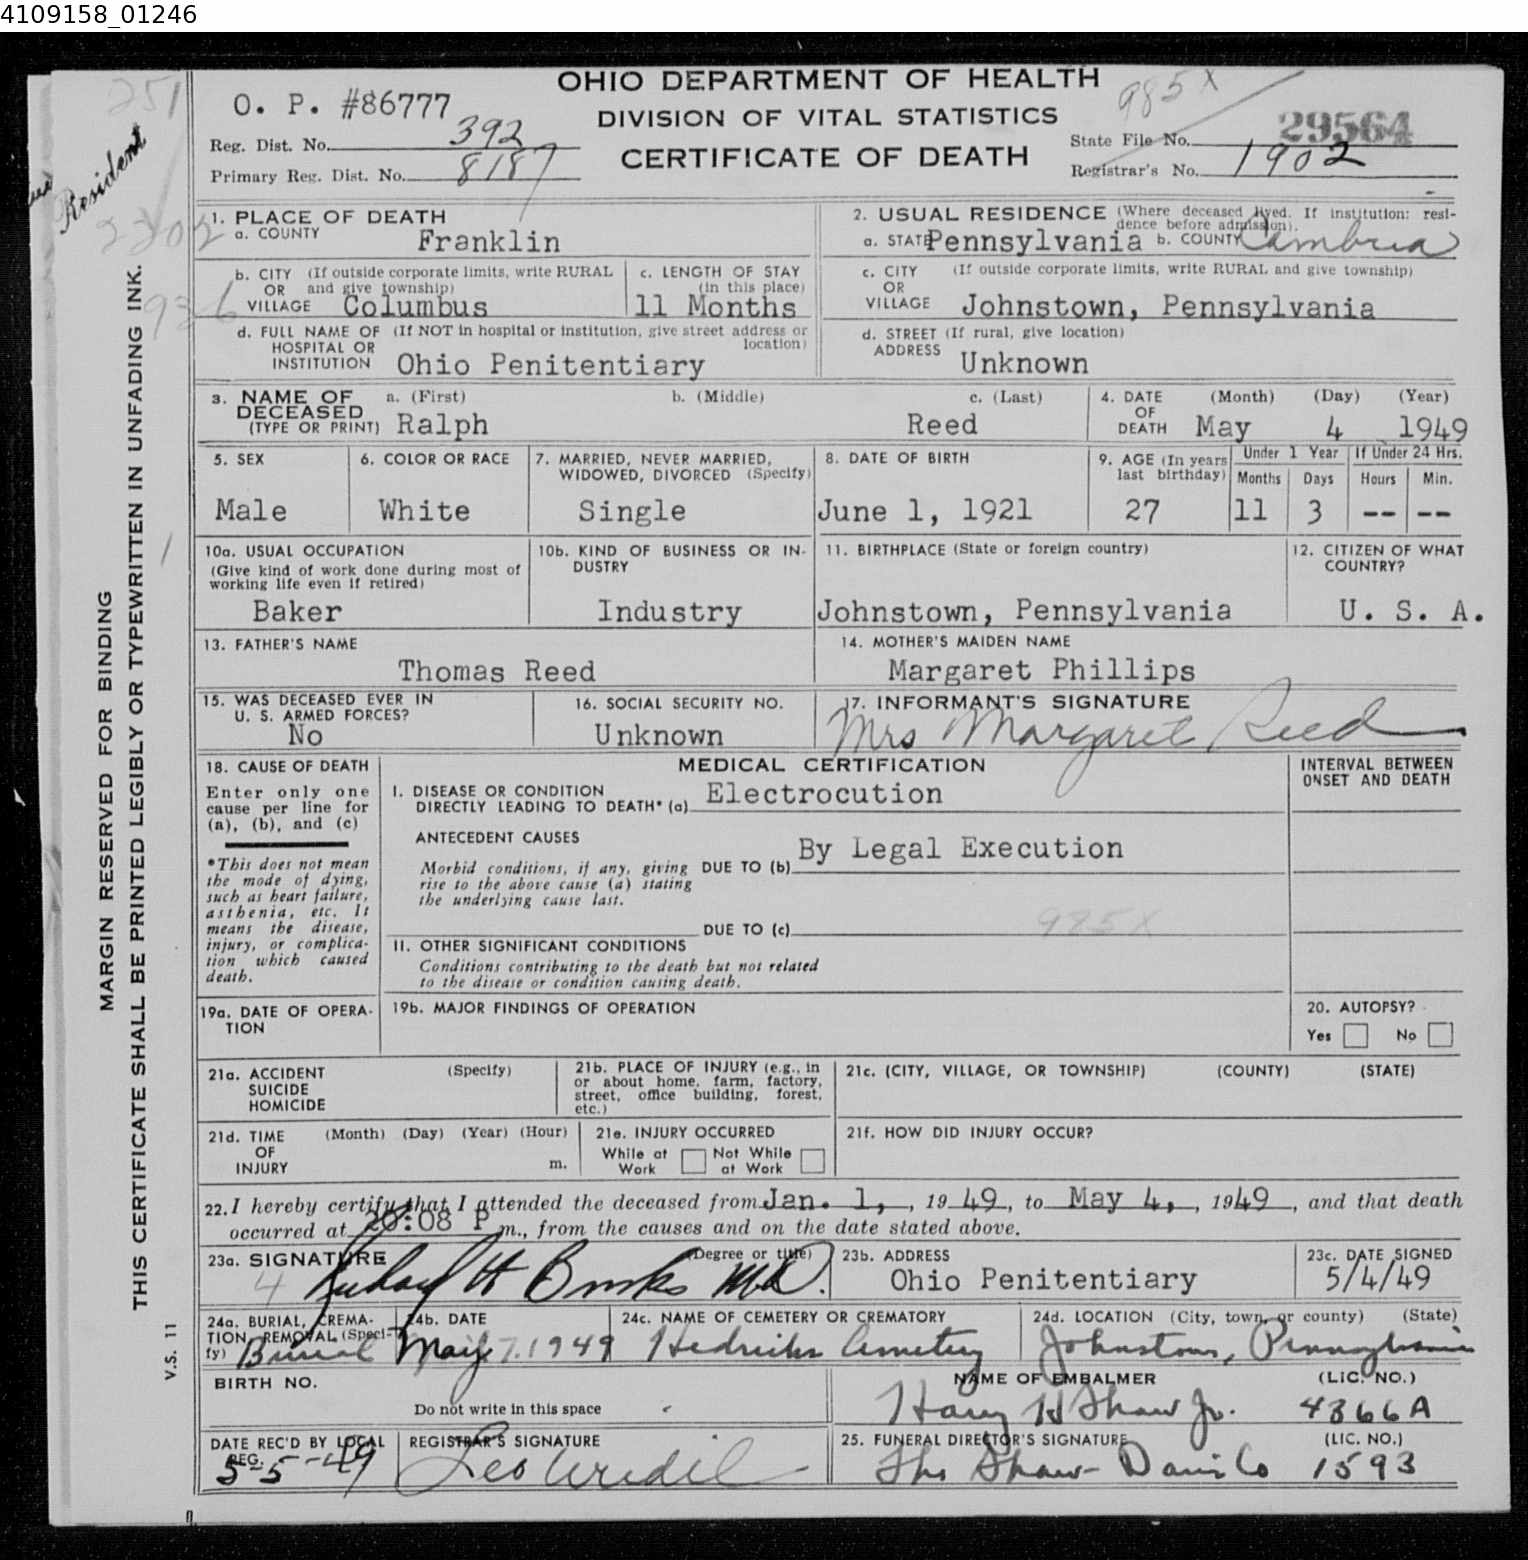 4109158_01246
OHIO DEPARTMENT OF HEALTH
DIVISION OF VITAL STATISTICS
CERTIFICATE OF DEATH
O. P. #86777
985X
29564
Reg. Dist. No. 392
State File No.
Primary Reg. Dist. No. 8187
Registrar's No. 1902
251
Resident
MARGIN RESERVED FOR BINDING
THIS CERTIFICATE SHALL BE PRINTED LEGIBLY OR TYPEWRITTEN IN UNFADING INK.
V.S. 11
1. PLACE OF DEATH
a. COUNTY Franklin
2. USUAL RESIDENCE (Where deceased lived. If institution: resi-
dence before admission).
a. STATE Pennsylvania b. COUNTY Cambria
b. CITY (If outside corporate limits, write RURAL
OR and give township)
VILLAGE Columbus
c. LENGTH OF STAY
(in this place)
11 Months
c. CITY (If outside corporate limits, write RURAL and give township)
OR
VILLAGE Johnstown, Pennsylvania
d. FULL NAME OF (If NOT in hospital or institution, give street address or
HOSPITAL OR location)
INSTITUTION Ohio Penitentiary
d. STREET (If rural, give location)
ADDRESS Unknown
3. NAME OF a. (First) b. (Middle) c. (Last)
DECEASED
(TYPE OR PRINT) Ralph Reed
4. DATE (Month) (Day) (Year)
OF
DEATH May 4 1949
5. SEX
Male
6. COLOR OR RACE
White
7. MARRIED, NEVER MARRIED,
WIDOWED, DIVORCED (Specify)
Single
8. DATE OF BIRTH
June 1, 1921
9. AGE (In years
last birthday)
27
Under 1 Year
Months Days
11 3
If Under 24 Hrs.
Hours Min.
-- --
10a. USUAL OCCUPATION
(Give kind of work done during most of
working life even if retired)
Baker
10b. KIND OF BUSINESS OR IN-
DUSTRY
Industry
11. BIRTHPLACE (State or foreign country)
Johnstown, Pennsylvania
12. CITIZEN OF WHAT
COUNTRY?
U. S. A.
13. FATHER'S NAME
Thomas Reed
14. MOTHER'S MAIDEN NAME
Margaret Phillips
15. WAS DECEASED EVER IN
U. S. ARMED FORCES?
No
16. SOCIAL SECURITY NO.
Unknown
17. INFORMANT'S SIGNATURE
Mrs Margaret Reed
18. CAUSE OF DEATH
Enter only one
cause per line for
(a), (b), and (c)
*This does not mean
the mode of dying,
such as heart failure,
asthenia, etc. It
means the disease,
injury, or complica-
tion which caused
death.
MEDICAL CERTIFICATION
INTERVAL BETWEEN
ONSET AND DEATH
I. DISEASE OR CONDITION
DIRECTLY LEADING TO DEATH* (a) Electrocution
ANTECEDENT CAUSES
Morbid conditions, if any, giving DUE TO (b) By Legal Execution
rise to the above cause (a) stating
the underlying cause last.
DUE TO (c) 985X
II. OTHER SIGNIFICANT CONDITIONS
Conditions contributing to the death but not related
to the disease or condition causing death.
19a. DATE OF OPERA-
TION
19b. MAJOR FINDINGS OF OPERATION
20. AUTOPSY?
Yes No
21a. ACCIDENT (Specify)
SUICIDE
HOMICIDE
21b. PLACE OF INJURY (e.g., in
or about home, farm, factory,
street, office building, forest,
etc.)
21c. (CITY, VILLAGE, OR TOWNSHIP) (COUNTY) (STATE)
21d. TIME (Month) (Day) (Year) (Hour)
OF
INJURY m.
21e. INJURY OCCURRED
While at Not While
Work at Work
21f. HOW DID INJURY OCCUR?
22. I hereby certify that I attended the deceased from Jan. 1, , 19 49, to May 4, , 1949 , and that death
occurred at 20:08 P m., from the causes and on the date stated above.
23a. SIGNATURE (Degree or title)
Richard H Brooks M.D.
23b. ADDRESS
Ohio Penitentiary
23c. DATE SIGNED
5/4/49
24a. BURIAL, CREMA-
TION, REMOVAL (Speci-
fy) Burial
24b. DATE
May 7. 1949
24c. NAME OF CEMETERY OR CREMATORY
Hedricks Cemetery
24d. LOCATION (City, town, or county) (State)
Johnstown, Pennsylvania
BIRTH NO.
Do not write in this space
NAME OF EMBALMER (LIC. NO.)
Harry H Shaw Jr. 4366A
DATE REC'D BY LOCAL
REG.
5-5-49
REGISTRAR'S SIGNATURE
25. FUNERAL DIRECTOR'S SIGNATURE (LIC. NO.)
The Shaw-Davis Co 1593